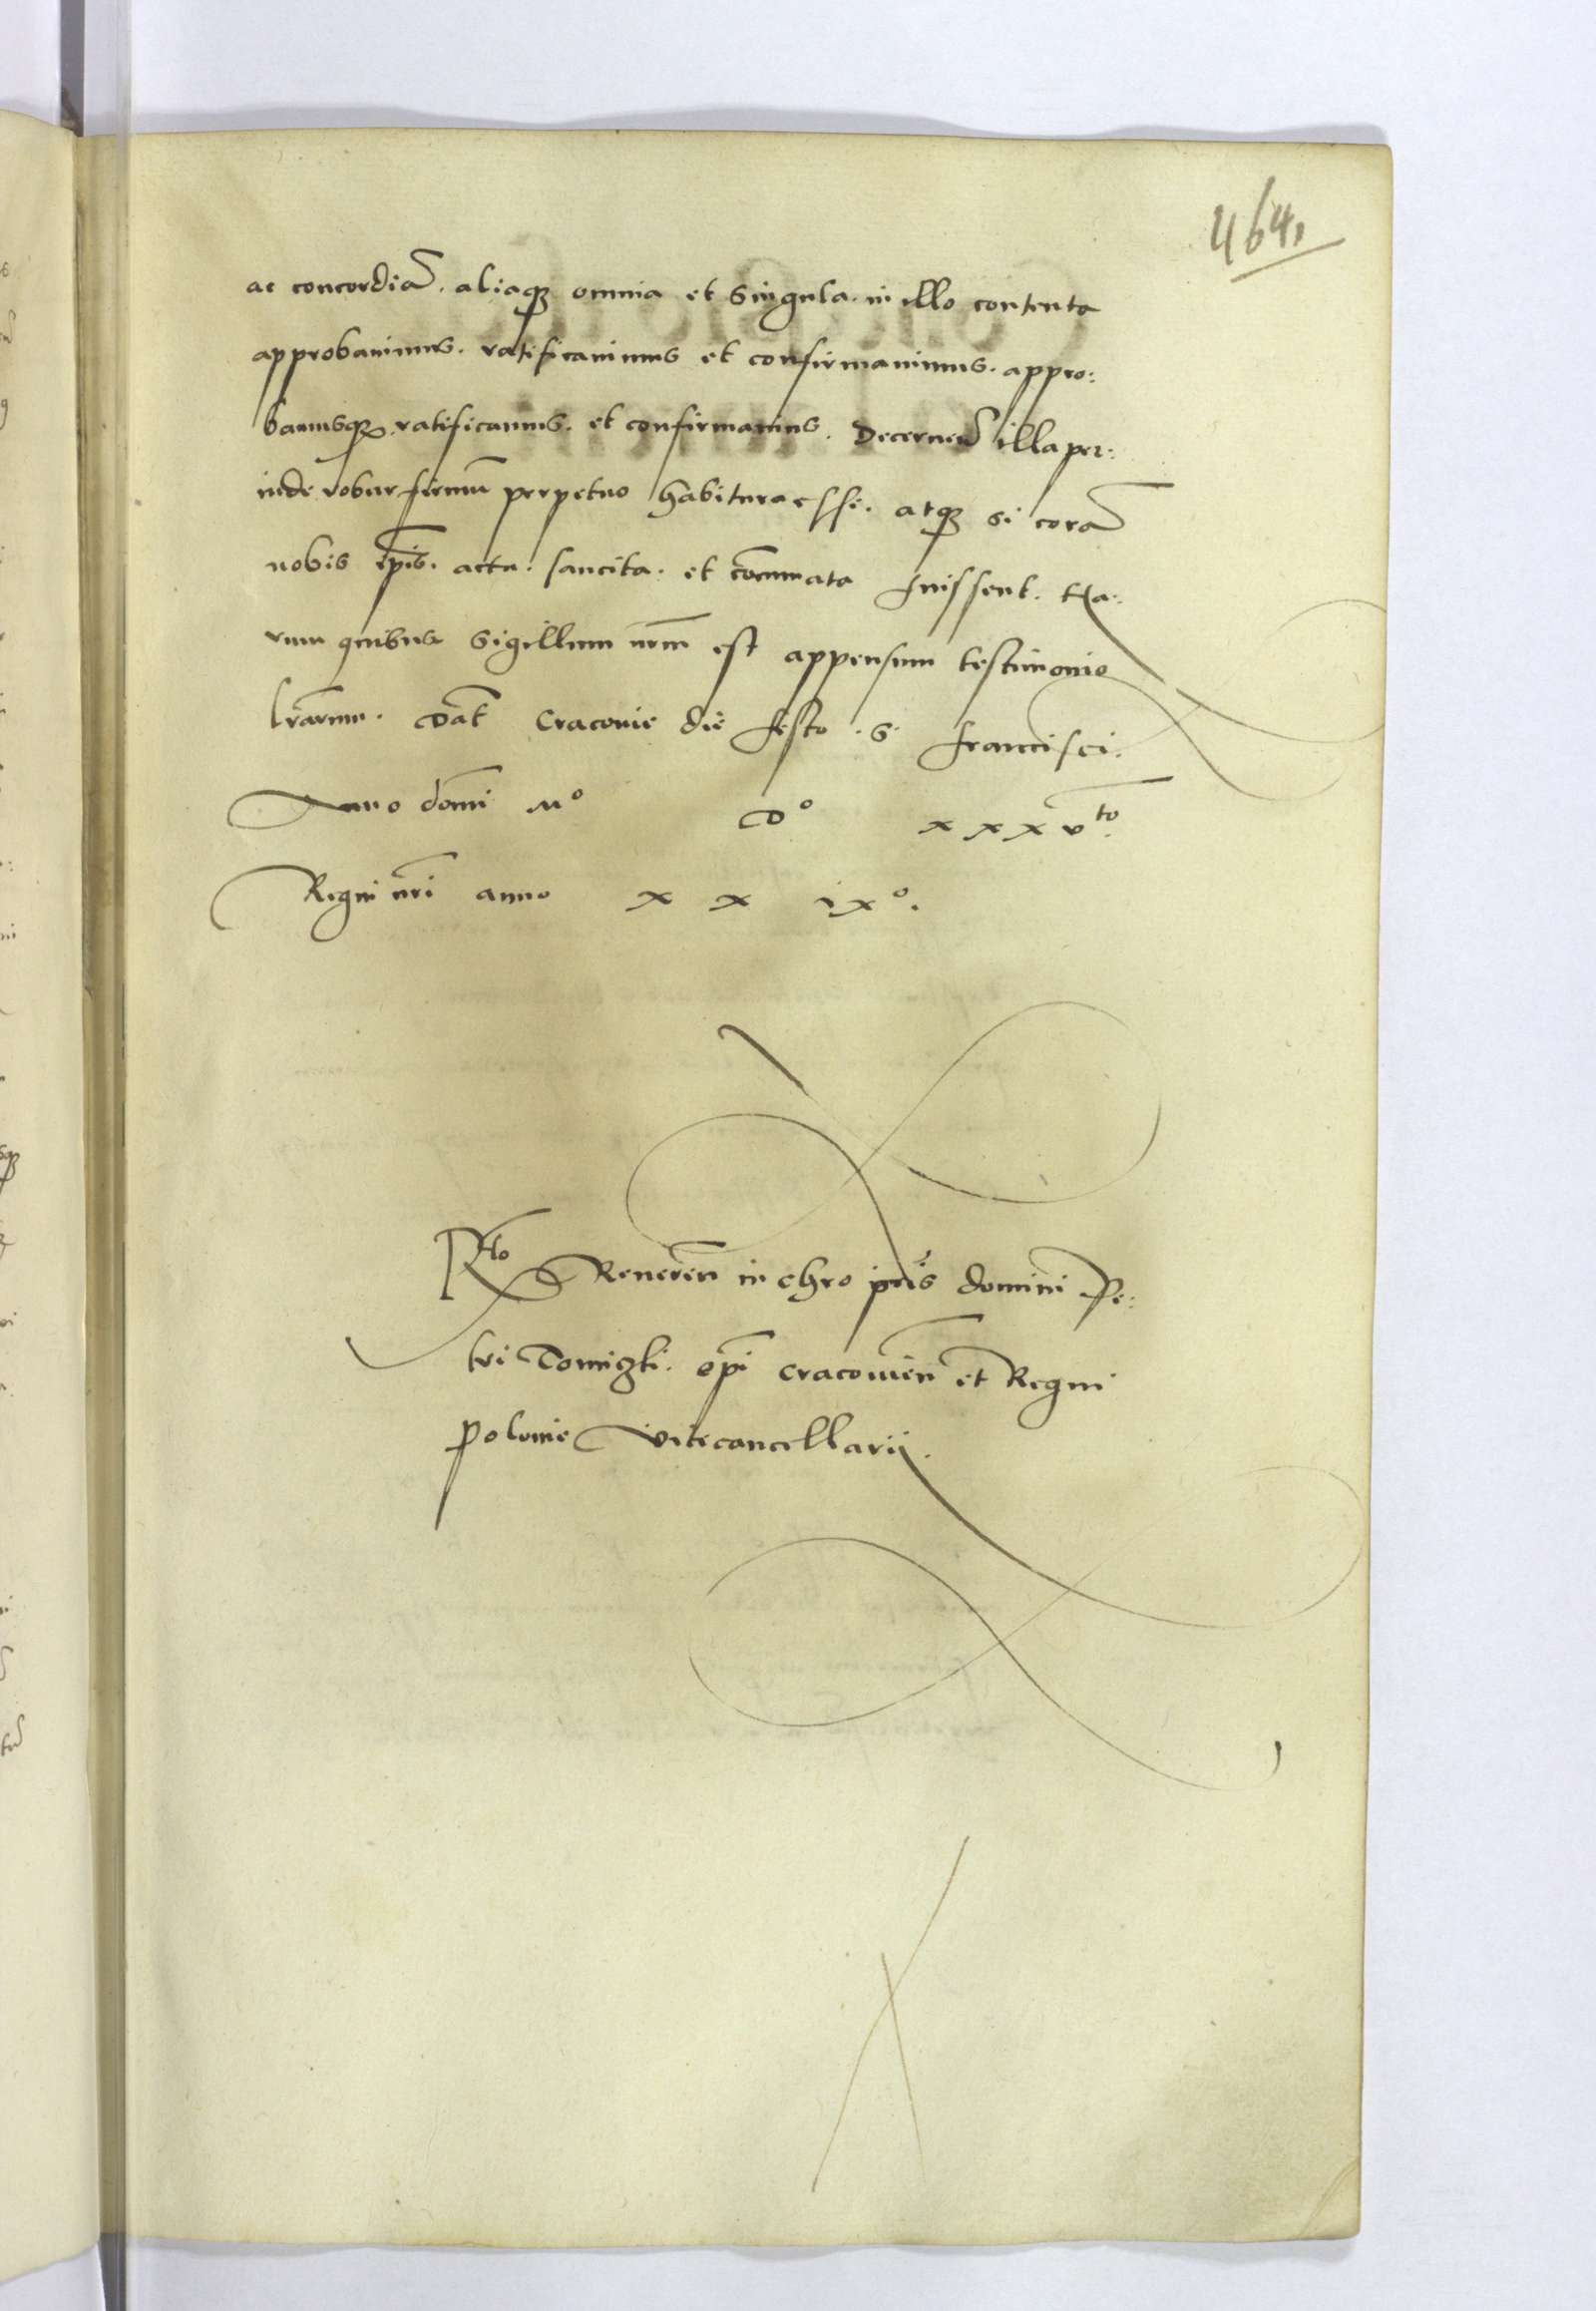 464,
ac concordiā. aliaqȝ omnia et singula. in illo contenta
approbauimus. ratificauimus et confirmauimus. appro:
bamusqȝ. ratificamus. et confirmamus. Decerneñ illa per:
inde robur firmū perpetuo habitura esse. atqȝ si corā
nobis ip̄is. actu. sancita. et cōcu̅mata fuissent. Ha:
rum quibus sigillum nr̄m est appensum testimonio
lr̄arum. Dat̄ Cracouie die festo .S. Francisci.
Anno domi̅ Mº Dº xxxvto.
Regni nr̄i anno xx ixº.
Rto Reueren̅ in chro pr̄is domini Pe:
tri Tomiczki. ep̄i Cracouien̅ et Regni
Polonie Vicecancellarij.